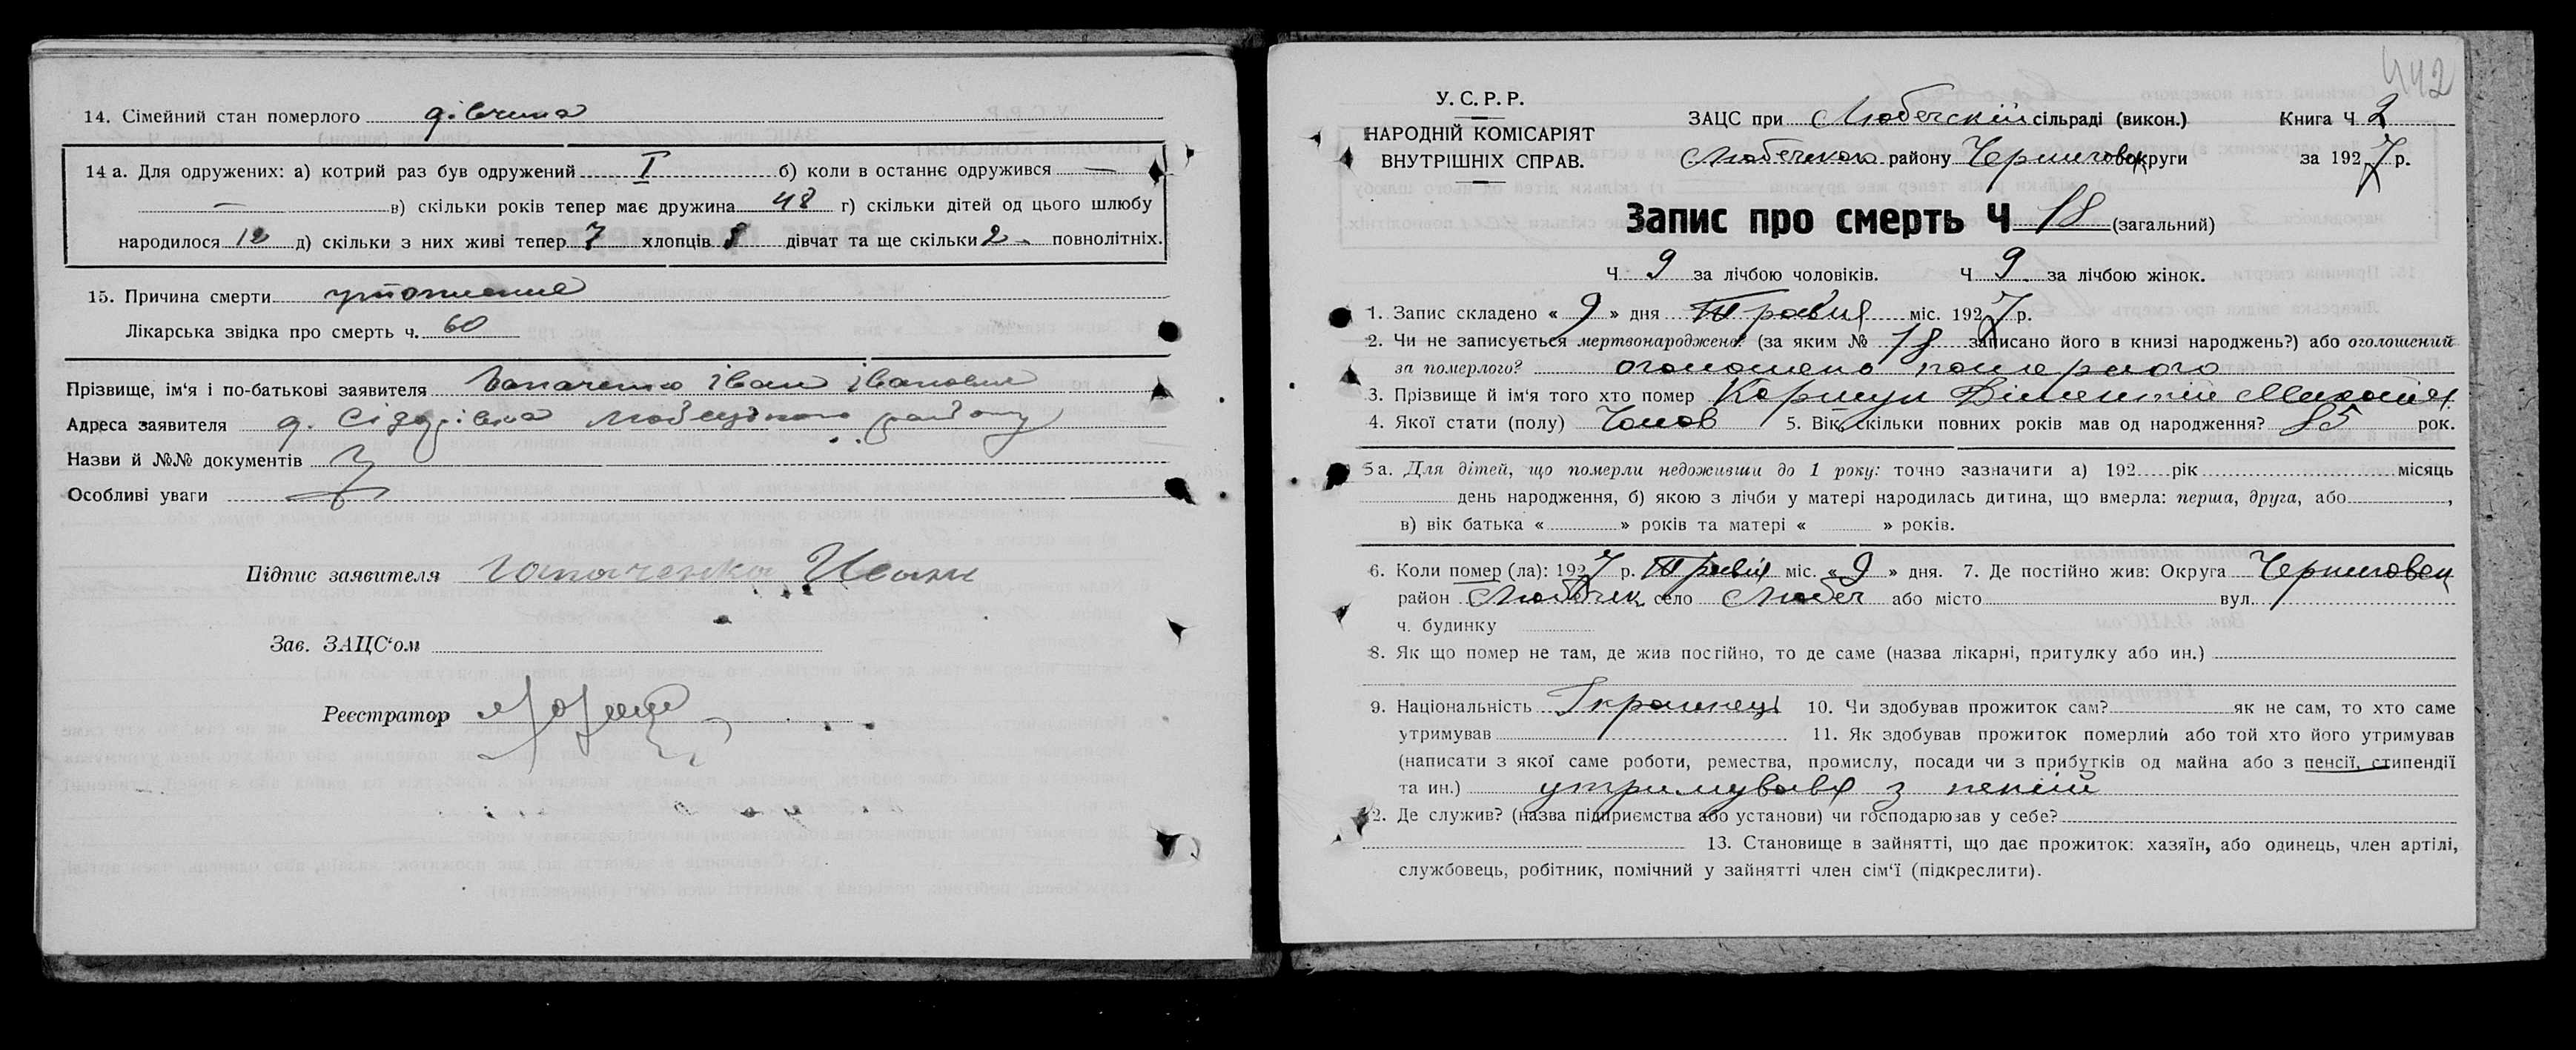 14. Сімейний стан померлого дівчина
14 а. Для одружених: а) котрий раз був одружений I б) коли в останнє одружився —
— в) скільки років тепер має дружина 48 г) скільки дітей од цього шлюбу
народилося 12 д) скільки з них живі тепер 7 хлопців дівчат та ще скільки 2 - повнолітніх.
15. Причина смерти утоплення
Лікарська звідка про смерть ч. 60
Прізвище, ім'я і по-батькові заявителя Іван Іванович
Адреса заявителя Любецького району
Назви й №№ документів
Особливі уваги
Підпис заявителя Иван
Зав. ЗАЦС'ом
Реєстратор
442
У. С. Р. Р.
НАРОДНІЙ КОМІСАРІЯТ
ВНУТРІШНІХ СПРАВ.
ЗАЦС при Любечскій сільраді (викон.) Книга Ч 2
Любечского району Чернигово округи за 1927 р.
Запис про смерть Ч 18 (загальний)
Ч 9 за лічбою чоловіків. Ч 9 за лічбою жінок.
1. Запис складено « 9 » дня Травня міс. 1927 р.
2. Чи не записується мертвонароджене? (за яким № 18 записано його в книзі народжень?) або оголошений
за померлого? оголошено померлого
3. Прізвище й ім'я того хто помер Коршун
4. Якої стати (полу) Чолов 5. Вік, скільки повних років мав од народження? 85 рок.
5а. Для дітей, що померли недоживши до 1 року: точно зазначити а) 192 рік місяць
день народження, б) якою з лічби у матері народилась дитина, що вмерла: перша, друга, або ,
в) вік батька « » років та матері « » років.
6. Коли помер (ла): 1927 р. Травня міс. «9» дня. 7. Де постійно жив: Округа Черниговськ
район Любечск село Любеч або місто вул.
ч. будинку
8. Як що помер не там, де жив постійно, то де саме (назва лікарні, притулку або ин.)
9. Національність Українець 10. Чи здобував прожиток сам? як не сам, то хто саме
утримував 11. Як здобував прожиток померлий або той хто його утримував
(написати з якої саме роботи, ремества, промислу, посади чи з прибутків од майна або з пенсії, стипендії
та ин.) утримувався з пенсії
12. Де служив? (назва підприємства або установи) чи господарював у себе?
13. Становище в зайнятті, що дає прожиток: хазяїн, або одинець, член артілі,
службовець, робітник, помічний у зайнятті член сім'ї (підкреслити).